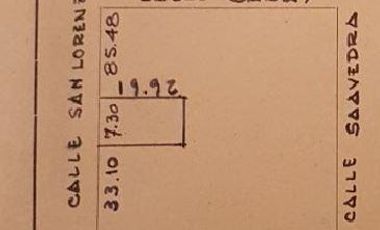 CALLE SAN LOREN
85.48
19.62
7.30
33.10
CALLE SAAVEDRA